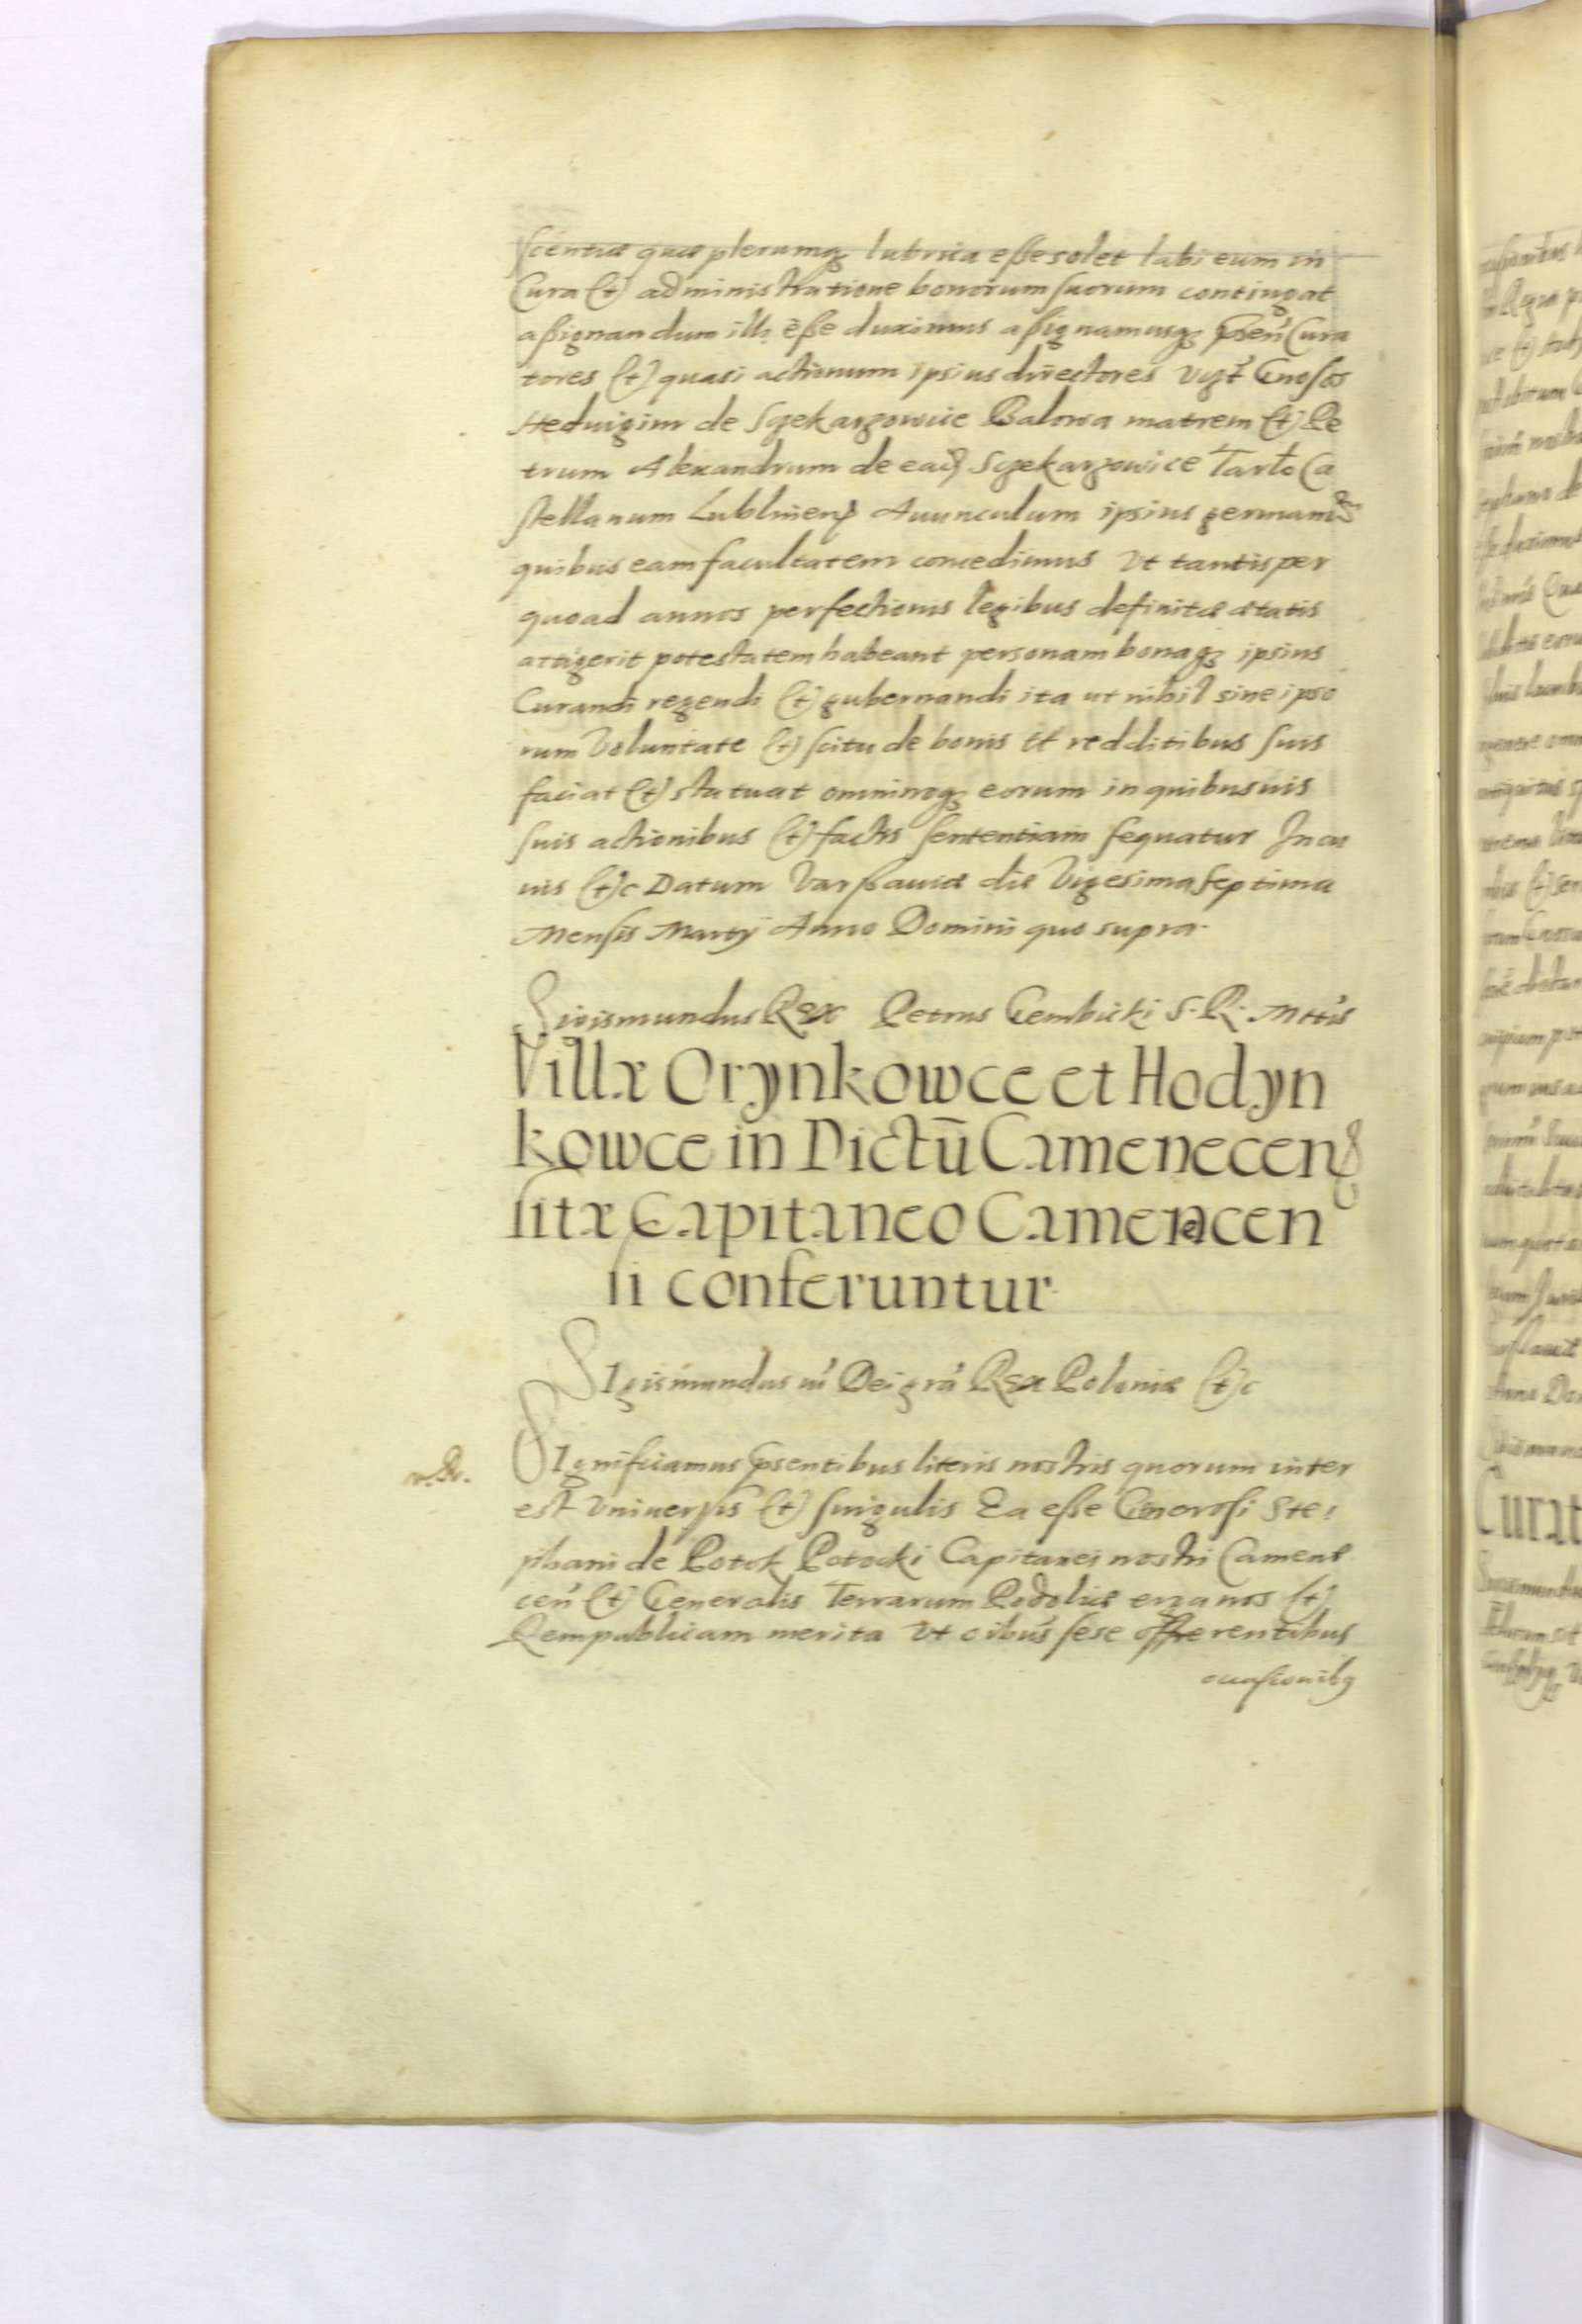 scentia quæ plerumq₃ lubrica esse solet labi eum in
Cura (et) administratione bonorum suorum contingat
assignandum illi esse duximus assignamusq₃ psen̄ Cura
tores (et) quasi actionum ipsius directores vyt̄ Gnosos
Heduigim de Sczekarzowice Balowa matrem (et) Pe
trum Alexandrum de eadȝ Sczekarzowice Tarło Ca
stellanum Lublinenȝ Auunculum ipsius germanū
quibus eam facultatem concedimus Vt tantisper
quoad annos perfectionis legibus definitæ ætatis
attigerit potestatem habeant personam bonaq₃ ipsius
Curandi regendi (et) gubernandi ita ut nihil sine ipso
rum Voluntate (et) scitu de bonis et redditibus suis
faciat (et) statuat omninoq₃ eorum in quibusuis
suis actionibus (et) factis sententiam sequatur In cu
ius (et)c Datum Varssauiæ die Vigesima septima
Mensis Martij Anno Domini quo supra.
Sigismundus Rex Petrus Gembicki S. R. Mttis
Villæ Orynkowce et Hodyn
kowce in Dictū Camenecenȝ
sitæ Capitaneo Camenecen
si conferuntur
Sigismundus iii Dei grā Rex Poloniæ (et)c
Significamus psentibus literis nostris quorum inter
est Vniuersis (et) singulis Ea esse Generosi Ste:
phani de Potok Potocki Capitanei nostri Camene
cen̄ (et) Generalis Terrarum Podoliæ erga nos (et)
Rempublicam merita Vt oibus sese offerentibus
occasionibȝ